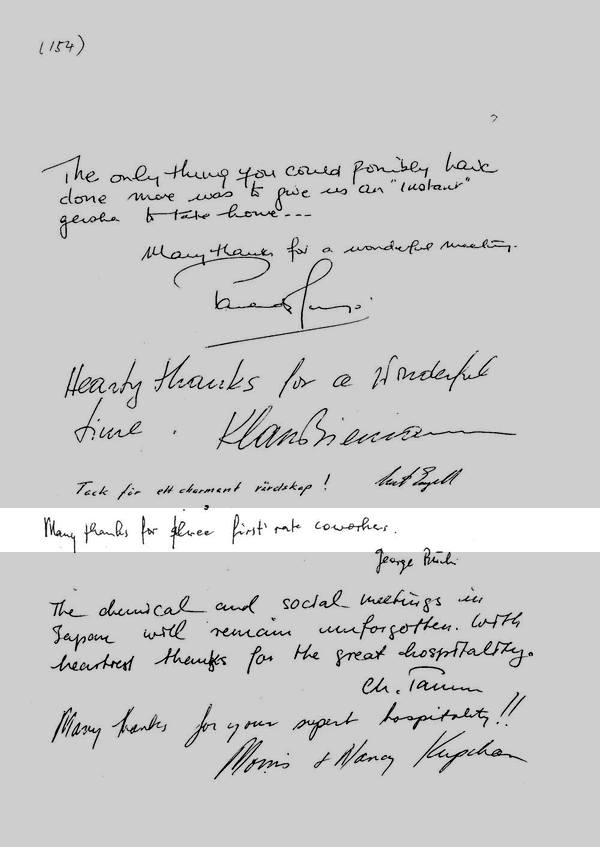 (154)
?
The only thing you could possibly have
done more was to give us an "instant"
geisha to take home---
Many thanks for a wonderful meeting.
Hearty thanks for a wonderful
time. Klaus Biemann
Tack för ett charmant värdskap!
Many thanks for three first rate coworkers.
George Büchi
The chemical and social meetings in
Japan will remain unforgotten. With
heartiest thanks for the great hospitality.
Ch. Tamm
Many thanks for your superb hospitality!!
Morris & Nancy Kupchan